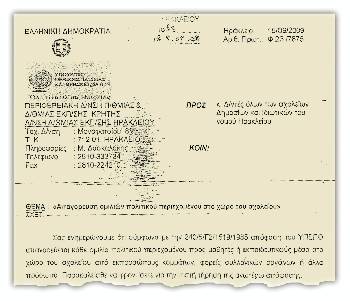 ΗΡΑΚΛΕΙΟΥ
ΕΛΛΗΝΙΚΗ ΔΗΜΟΚΡΑΤΙΑ
Ηράκλειο 15/09/2009
Αρ. Πρωτ. Φ.23/7875
ΠΕΡΙΦΕΡΕΙΑΚΗ Δ/ΝΣΗ Π/ΘΜΙΑΣ &
Δ/ΘΜΙΑΣ ΕΚΠ/ΣΗΣ ΚΡΗΤΗΣ
Δ/ΝΣΗ Α/ΘΜΙΑΣ ΕΚΠ/ΣΗΣ ΗΡΑΚΛΕΙΟΥ
Ταχ. Δ/νση : Μονοφατσίου
Τ.Κ. : 71201 ΗΡΑΚΛΕΙΟ
Πληροφορίες : Μ. Δασκαλάκης
Τηλέφωνο : 2810-333724
Fax : 2810-2242
ΠΡΟΣ κ. Δ/ντές όλων των σχολείων
Δημοσίων και Ιδιωτικών του
νομού Ηρακλείου
ΚΟΙΝ:
ΘΕΜΑ «Απαγόρευση ομιλιών πολιτικού περιεχομένου στο χώρο του σχολείου»
ΣΧΕΤ.
Σας ενημερώνουμε ότι σύμφωνα με την απόφαση του ΥΠΕΠΘ
απαγορεύεται κάθε ομιλία πολιτικού περιεχομένου προς μαθητές ή εκπαιδευτικούς μέσα στο
χώρο του σχολείου από εκπροσώπους κομμάτων, φορείς συλλογικών οργάνων ή άλλα
πρόσωπα. Παρακαλείσθε για την πιστή τήρηση της ανωτέρω απόφασης.